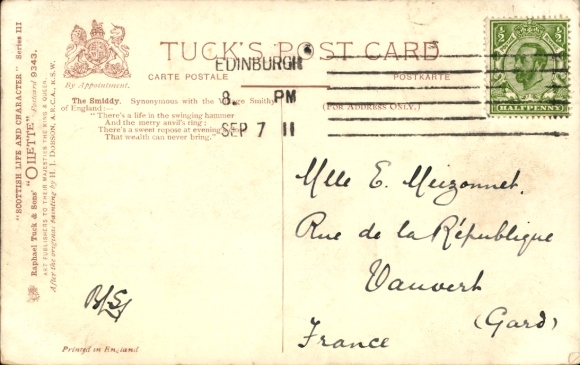 "SCOTTISH LIFE AND CHARACTER" Series III
Raphael Tuck & Sons' "OILETTE" Postcard 9343.
ART PUBLISHERS TO THEIR MAJESTIES THE KING & QUEEN.
After the original painting by H. J. DOBSON, A.R.C.A., R.S.W.
By Appointment.
TUCK'S POST CARD
CARTE POSTALE
POSTKARTE
EDINBURGH
8. PM
SEP 7 11
½ ½
HALFPENNY
The Smiddy. Synonymous with the Village Smithy
of England:—
"There's a life in the swinging hammer
And the merry anvil's ring;
There's a sweet repose at evening
That wealth can never bring."
(FOR ADDRESS ONLY.)
Mlle E. Meizonnet.
Rue de la République
Vauvert
(Gard)
France
Printed in England